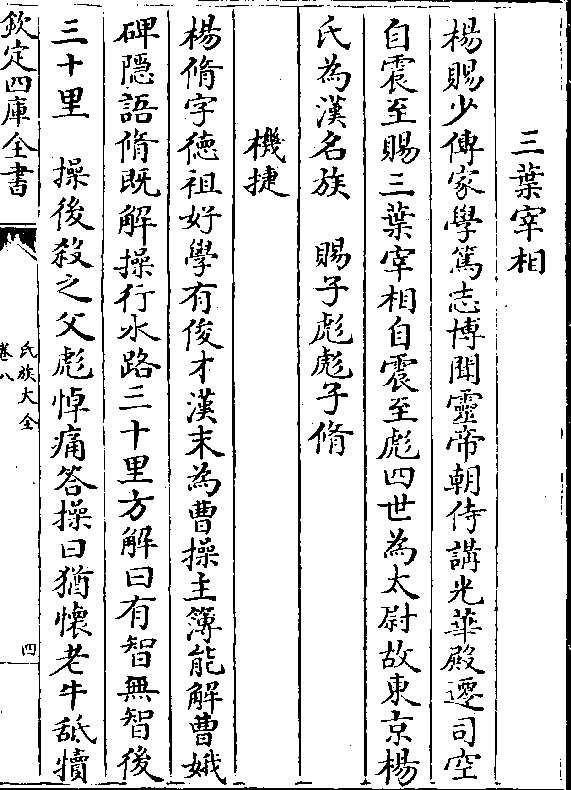 三葉宰相
楊賜少傳家學篤志博聞靈帝朝侍講光華殿遷司空
自震至賜三葉宰相自震至彪四世為太尉故東京楊
氏為漢名族　賜子彪彪子脩
機捷
楊脩字德祖好學有俊才漢末為曹操主簿能解曹娥
碑隱語脩既解操行水路三十里方解曰有智無智後
三十里　操後殺之父彪悼痛答操曰猶懷老牛舐犢
欽定四庫全書
氏族大全
卷八
四